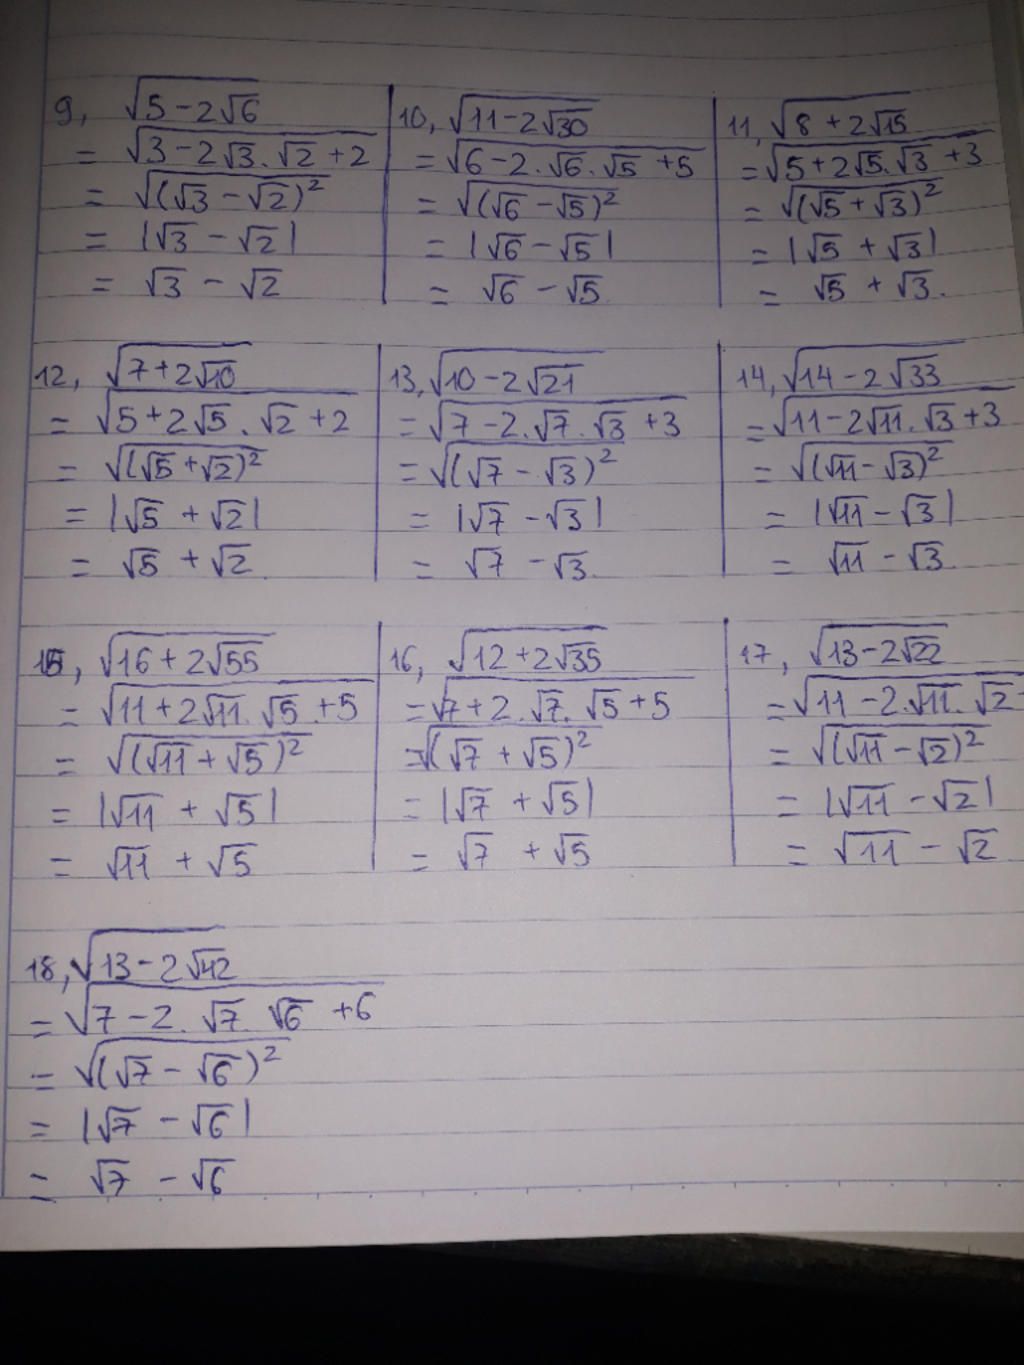 9, √(5 - 2√6)
= √(3 - 2√3 . √2 + 2)
= √((√3 - √2)²)
= |√3 - √2|
= √3 - √2
10, √(11 - 2√30)
= √(6 - 2 . √6 . √5 + 5)
= √((√6 - √5)²)
= |√6 - √5|
= √6 - √5
11, √(8 + 2√15)
= √(5 + 2√5 . √3 + 3)
= √((√5 + √3)²)
= |√5 + √3|
= √5 + √3.
12, √(7 + 2√10)
= √(5 + 2√5 . √2 + 2)
= √((√5 + √2)²)
= |√5 + √2|
= √5 + √2
13, √(10 - 2√21)
= √(7 - 2 . √7 . √3 + 3)
= √((√7 - √3)²)
= |√7 - √3|
= √7 - √3.
14, √(14 - 2√33)
= √(11 - 2√11 . √3 + 3)
= √((√11 - √3)²)
= |√11 - √3|
= √11 - √3
15, √(16 + 2√55)
= √(11 + 2√11 . √5 + 5)
= √((√11 + √5)²)
= |√11 + √5|
= √11 + √5
16, √(12 + 2√35)
= √(7 + 2 . √7 . √5 + 5)
= √((√7 + √5)²)
= |√7 + √5|
= √7 + √5
17, √(13 - 2√22)
= √(11 - 2 . √11 . √2
= √((√11 - √2)²)
= |√11 - √2|
= √11 - √2
18, √(13 - 2√42)
= √(7 - 2 . √7 . √6 + 6)
= √((√7 - √6)²)
= |√7 - √6|
= √7 - √6